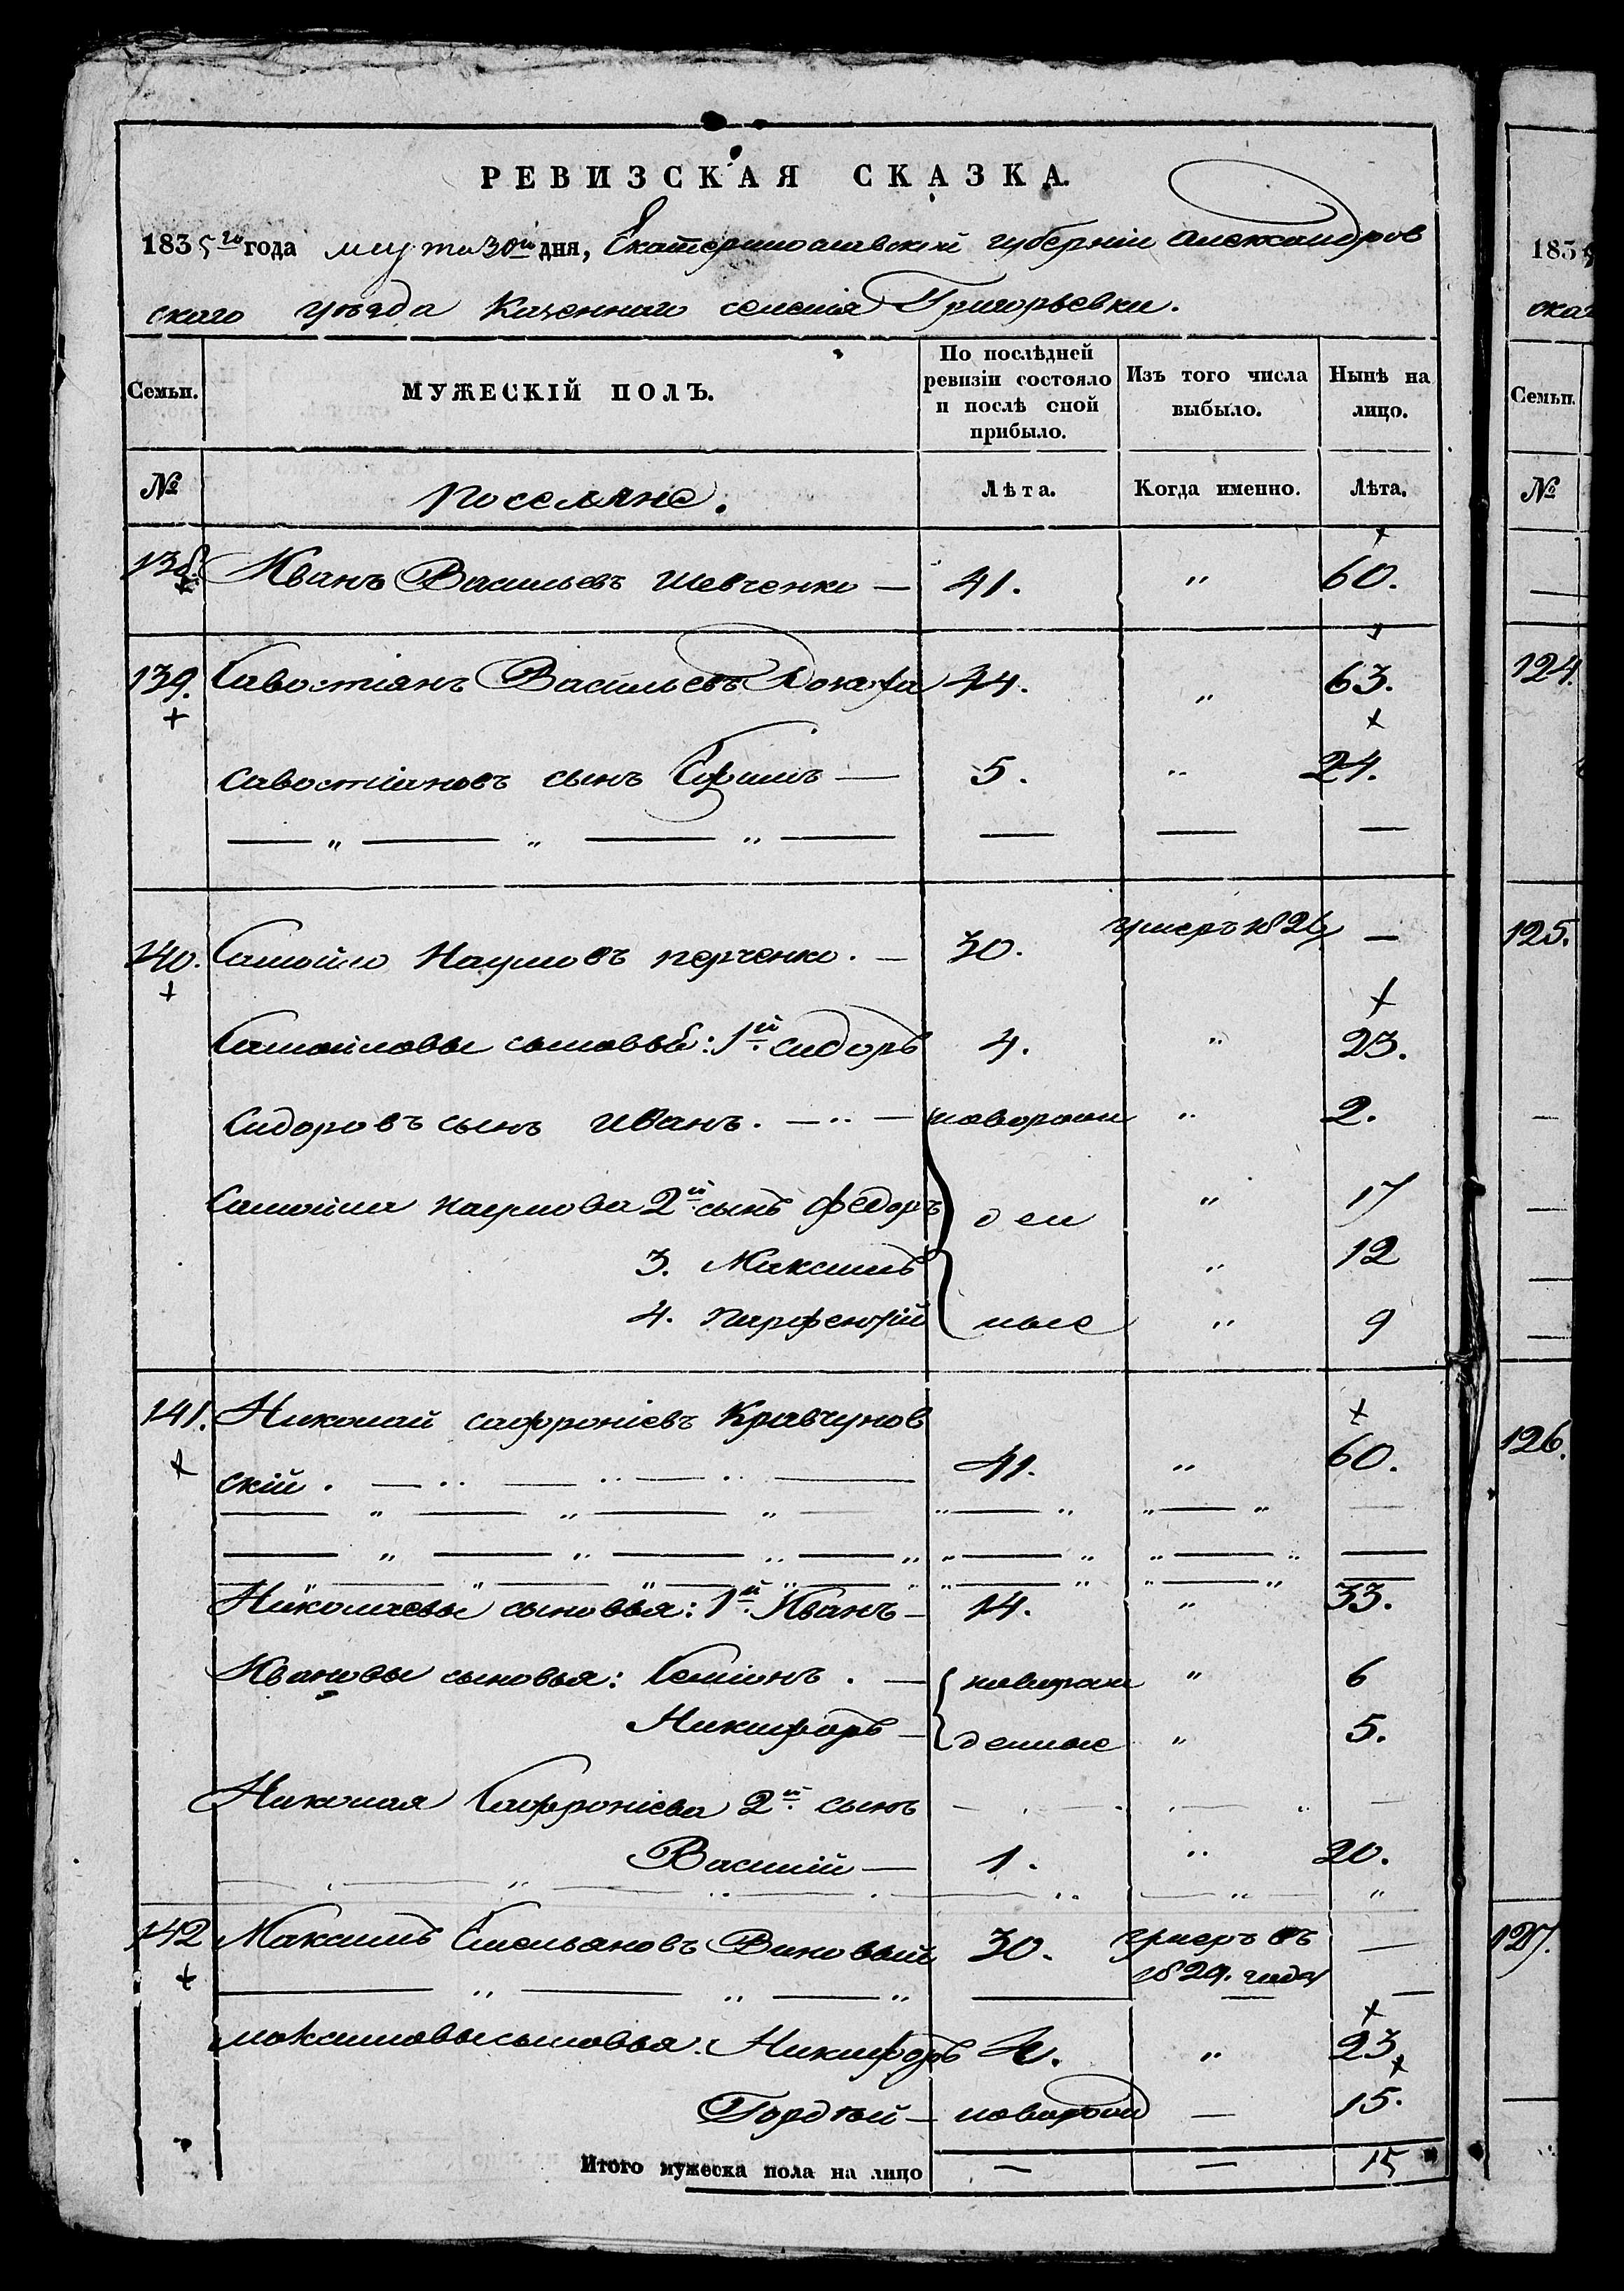 РЕВИЗСКАЯ СКАЗКА.
1835го года марта 30го дня, Екатеринославской губерніи Александров
ского уѣзда Казеннаго селенія Григорьевки.
Семьи. МУЖЕСКІЙ ПОЛЪ. По послѣдней ревизіи состояло и послѣ оной прибыло. Изъ того числа выбыло. Нынѣ на лицо.
№ Поселяне. Лѣта. Когда именно. Лѣта.
138. Иванъ Васильевъ Шевченко — 41. " 60.
139. Савостіянъ Васильевъ 44. " 63.
Савостіановъ сынъ Ефимъ — 5. " 24.
140. Самойло Наумовъ перченко. — 30. умеръ 1826 —
Самойловы сыновья: 1й Сидоръ 4. " 23.
Сидоровъ сынъ Иванъ. — новорож " 2.
Самойла Наумова 2й сынъ Федоръ ден " 17
3. Максимъ " 12
4. Парфентій ные " 9
141. Николай Сафроніевъ Кравчунов
скій. 41. " 60.
Николаевы сыновья: 1й Иванъ — 14. " 33.
Ивановы сыновья: Семіонъ. — новорож " 6
Никифоръ — денные " 5.
Николая Сафроніева 2й сынъ
Василій — 1. " 20.
142 Максимъ Емельяновъ Виновый 30. умеръ въ —
1829. года
Максимовы сыновья: Никифоръ 4. " 23.
Гордѣй — новорож — 15.
Итого мужеска пола на лицо — — 15
183
ска
Семьи.
№
124.
125.
126.
127.